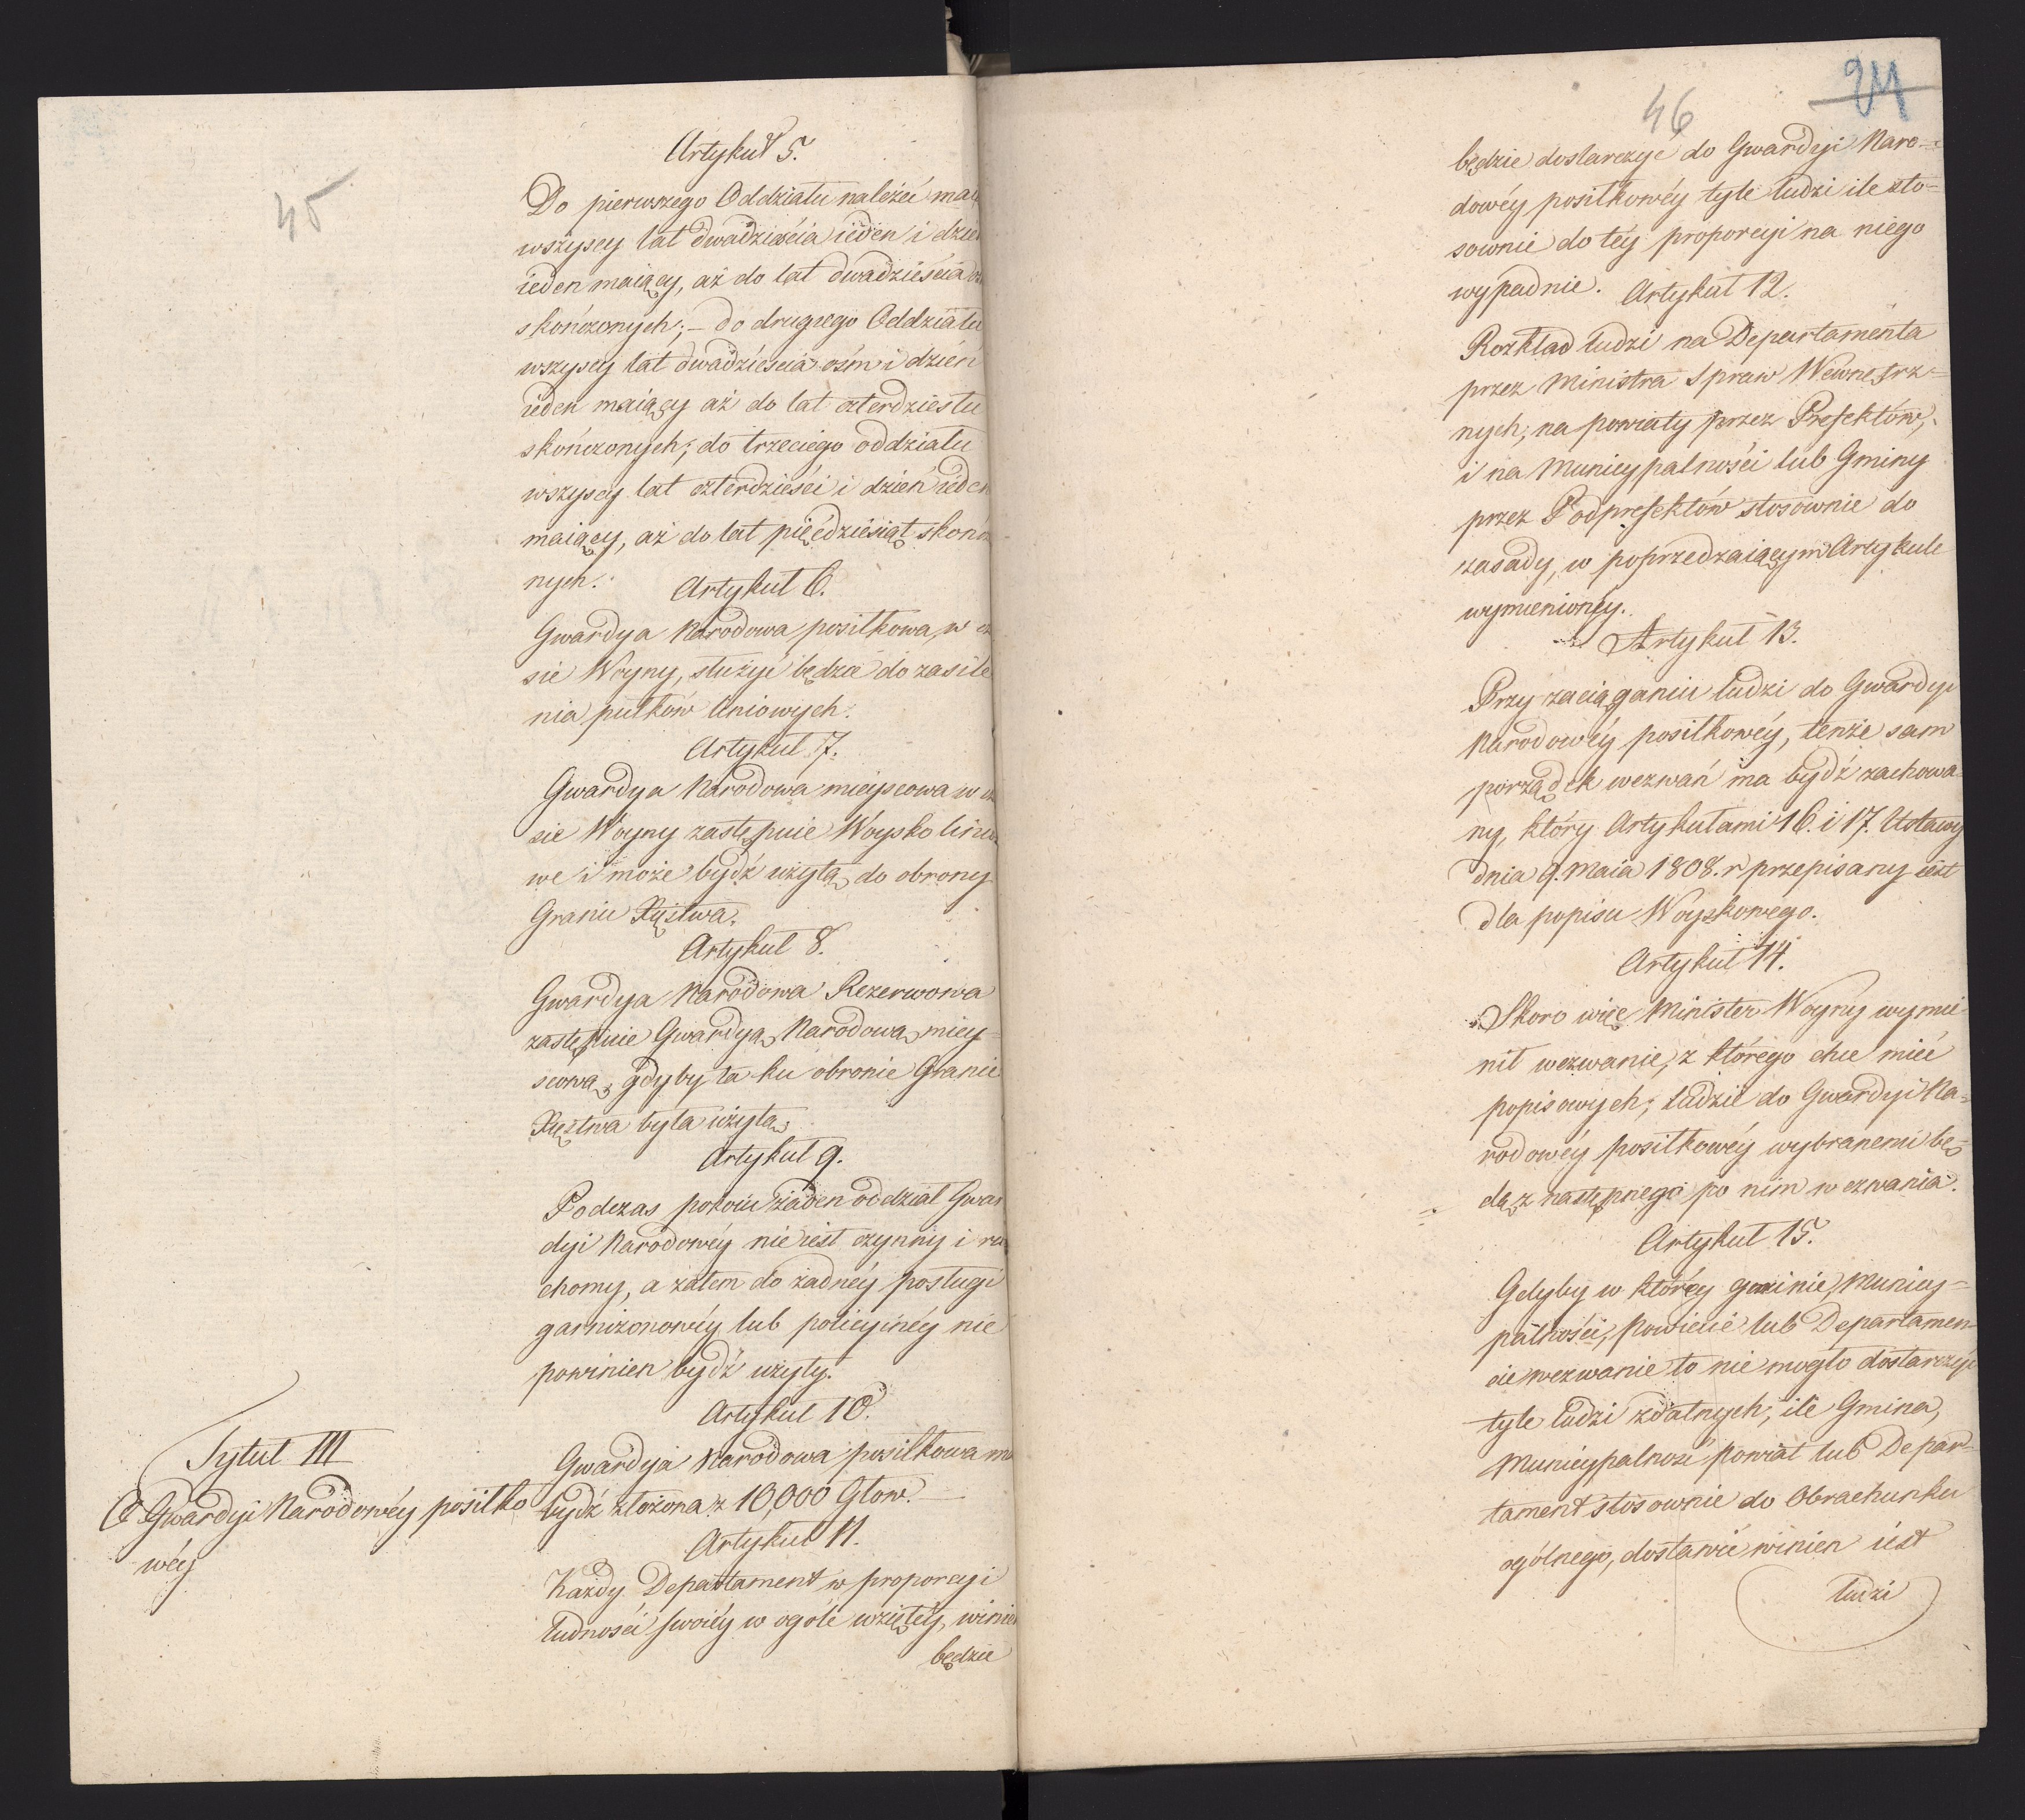 45
Artykuł 5.
Do pierwszego Oddziału należéć maią
wszyscy lat dwadzieścia ieden i dzień
ieden maiący, aż do lat dwadzieścia
skończonych; – do drugiego Oddziału
wszyscy lat dwadzieścia ośm i dzień
ieden maiący aż do lat czterdziestu
skończonych; do trzeciego oddziału
wszyscy lat czterdzieści i dzień ieden
maiący, aż do lat pięćdziesiąt skończ
nych.
Artykuł 6.
Gwardya Narodowa posiłkowa, w cza
sie Woyny, służyć będzie do zasile
nia pułków liniowych.
Artykuł 7.
Gwardya Narodowa mieyscowa w cza
sie Woyny zastępuie Woysko linio
we i może bydź użytą do obrony
Granic Xięstwa.
Artykuł 8.
Gwardya Narodowa Rezerwowa
zastępuie Gwardyą Narodową miey=
scową, gdyby ta ku obronie Granic
Xięstwa była użytą
Artykuł 9.
Podczas pokoiu żaden oddział Gwar
dyi Narodowéy nie iest czynny i ru
chomy, a zatém do żadnéy posługi
garnizonowéy lub policyinéy nie
powinien bydź użyty.
Artykuł 10.
Tytuł III
O Gwardyi Narodowéy posiłko
wéy
Gwardya Narodowa posiłkowa ma
bydź złożona z 10,000 Głow. –
Artykuł 11.
Każdy Departament w proporcyi
ludności swoiéy w ogóle wziętéy, winien
będzie
46
24
będzie dostarczyć do Gwardyi Naro=
dowéy posiłkowéy tyle ludzi ile sto=
sownie do téy proporcyi na niego
wypadnie.
Artykuł 12.
Rozkład ludzi na Departamenta
przez Ministra Spraw Wewnętrz=
nych, na powiaty przez Prefektów,
i na Municypalności lub Gminy
przez Podprefektów stosownie do
zasady, w poprzedzaiącym Artykule
wymienionéy.
Artykuł 13.
Przy zaciąganiu ludzi do Gwardyi
Narodowéy posiłkowéy, tenże sam
porządek wezwań ma bydź zachowa=
ny, który Artykułami 16. i 17. Ustawy
dnia 9. Maia 1808. r przepisany iest
dla popisu Woyskowego.
Artykuł 14.
Skoro więc Minister Woyny wymie
nił wezwanie, z którego chce mieć
popisowych; ludzie do Gwardyi Na=
rodowéy posiłkowéy wybranemi bę=
dą z następnego po nim wezwania.
Artykuł 15.
Gdyby w któréy gminie, Municy=
palności, Powiecie lub Departamen=
cie wezwanie to nie mogło dostarczyć
tyle ludzi zdatnych, ile Gmina,
Municypalność powiat lub Depar=
tament stosownie do Obrachunku
ogólnego, dostawić winien iest
ludzi